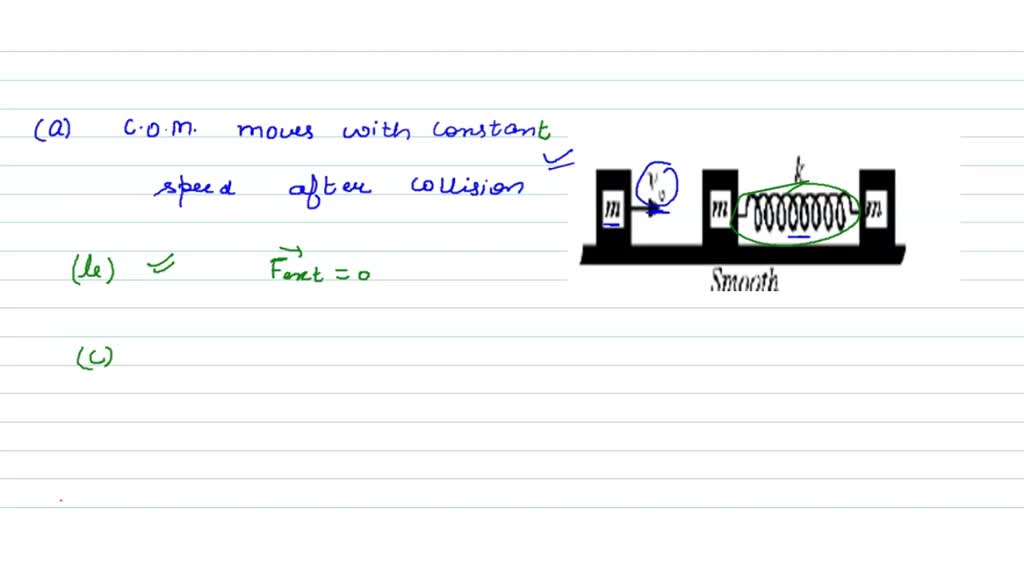 (a) C.O.M. moves with constant
speed after collision
(b) F⃗ext = 0
(c)
v₀ k
m m m
Smooth